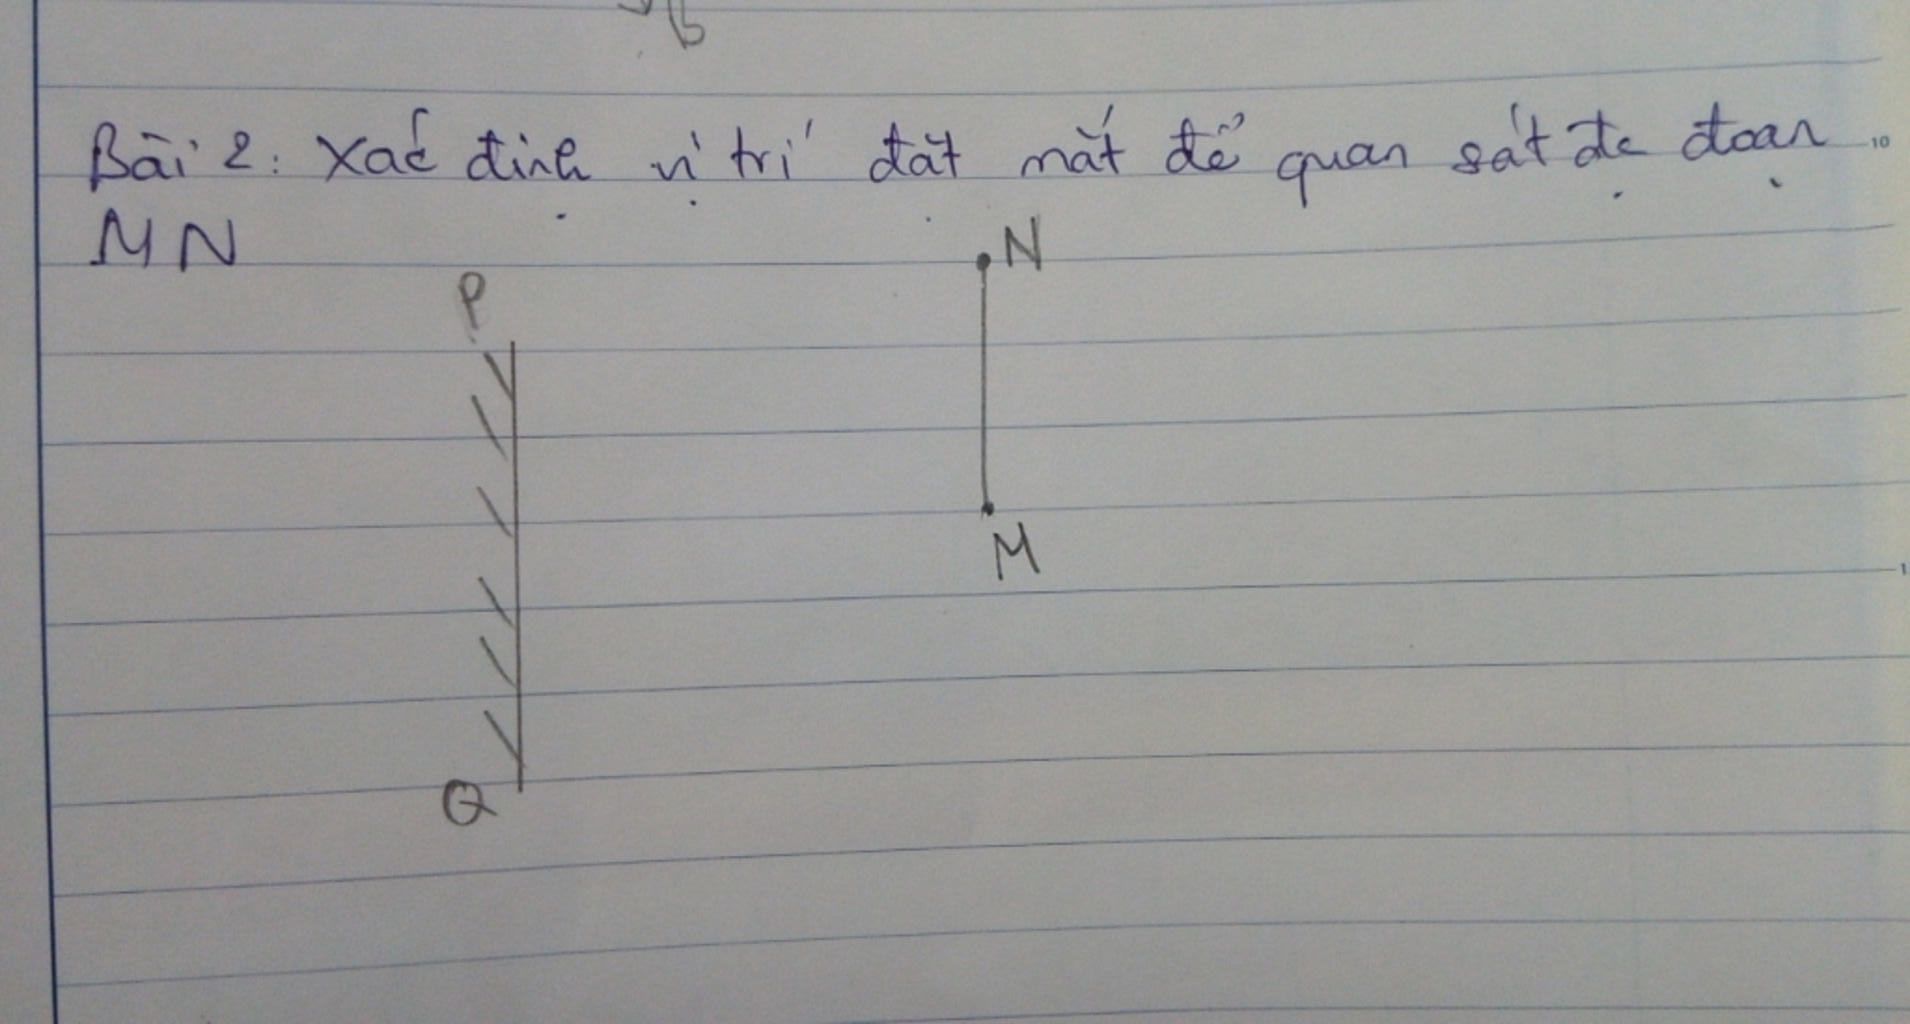 Bài 2: Xác định vị trí đặt mắt để quan sát đc đoạn
MN
N
P
M
Q